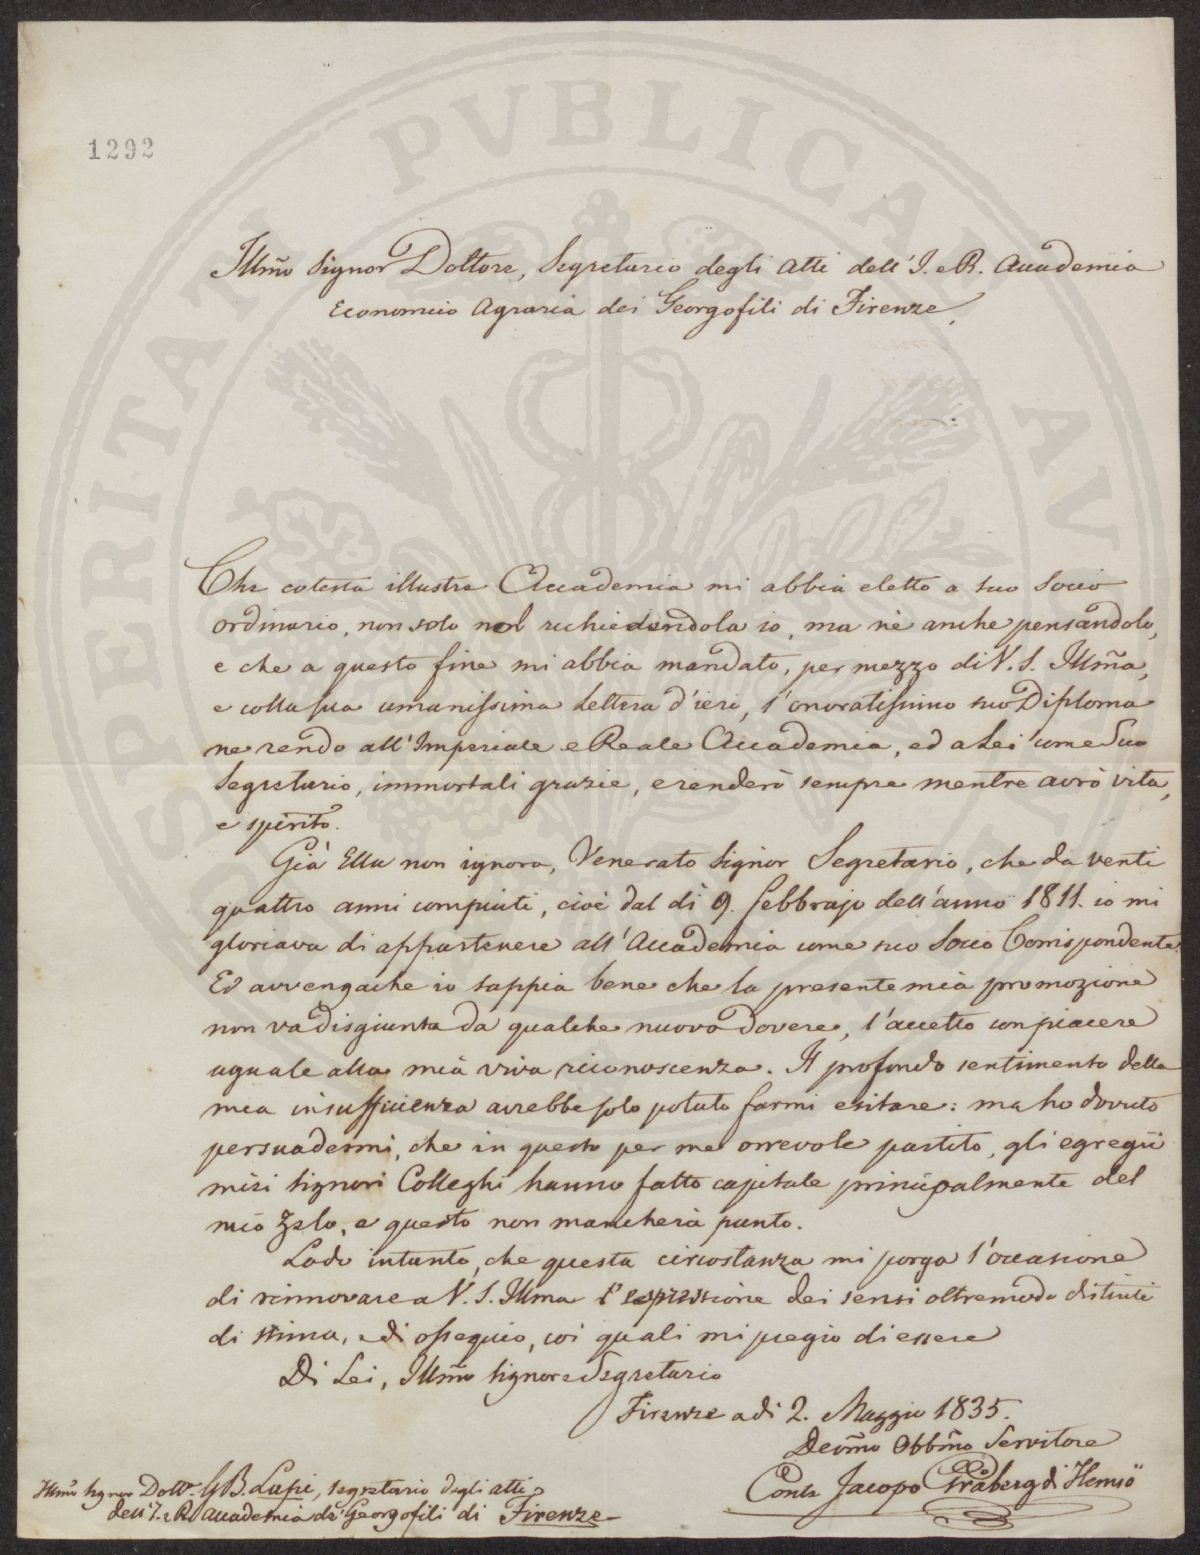 PROSPERITATI PUBLICAE AUGENDAE
1292
Illm̃o Signor Dottore, Segretario degli Atti dell' I. e R. Accademia
Economico Agraria dei Georgofili di Firenze.
Che cotesta illustre Accademia mi abbia eletto a suo Socio
ordinario, non solo nol richiedendola io, ma nè anche pensandolo,
e che a questo fine mi abbia mandato, per mezzo di V. S. Illm̃a,
e colla sua umanissima Lettera d'ieri, l'onoratissimo suo Diploma
ne rendo all'Imperiale e Reale Accademia, ed a Lei come Suo
Segretario, immortali grazie, e renderò sempre mentre avrò vita,
e spirito.
Già Ella non ignora, Venerato Signor Segretario, che da venti
quattro anni compiuti, cioè dal dì 9. febbrajo dell'anno 1811. io mi
gloriava di appartenere all'Accademia come suo Socio Corrispondente.
Ed avvengache io sappia bene che la presente mia promozione
non va disgiunta da qualche nuovo dovere, l'accetto con piacere
uguale alla mia viva riconoscenza. Il profondo sentimento della
mia insufficienza avrebbe solo potuto farmi esitare: ma ho dovuto
persuadermi, che in questo per me orrevole partito, gli egregii
miei Signori Colleghi hanno fatto capitale principalmente del
mio Zelo, e questo non mancherà punto.
Lodo intanto, che questa circostanza mi porga l'occasione
di rinnovare a V. S. Illma l'espressione dei sensi oltremodo distinti
di stima, e di ossequio, coi quali mi pregio di essere
Di Lei, Illm̃o Signore Segretario
Firenze a dì 2. Maggio 1835.
Devm̃o Obbm̃o Servitore
Conte Jacopo Gråberg di Hemsö
Illm̃o Signor Dott. G B. Lapi, segretario degli atti
dell' I. e R. Accademia de' Georgofili di Firenze